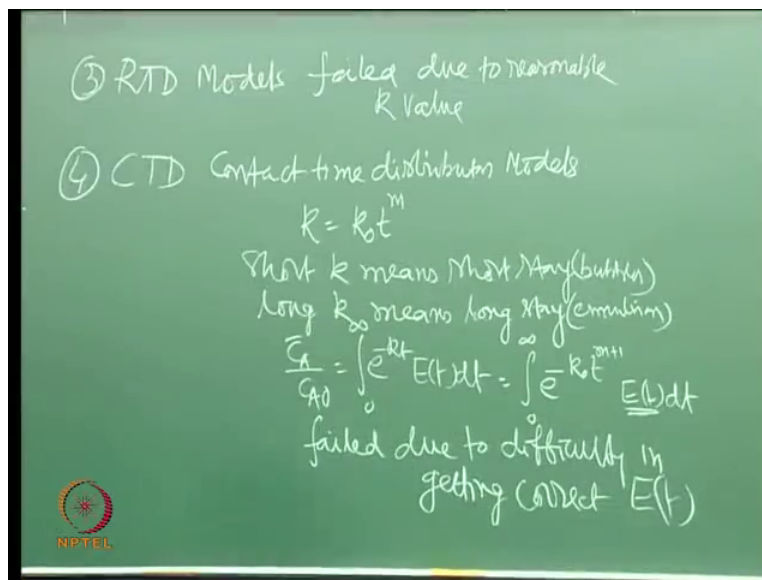 ③ RTD Models failed due to reasonable
k value
④ CTD Contact time distribution Models
k = k₀ t^m
Short k means short stay (bubbles)
long k means long stay (emulsion)
C̄_A/C_A0 = ∫₀^∞ e^(-kt) E(t)dt = ∫₀^∞ e^(-k₀ t^(m+1)) E(t)dt
failed due to difficulty in
getting correct E(t)
NPTEL